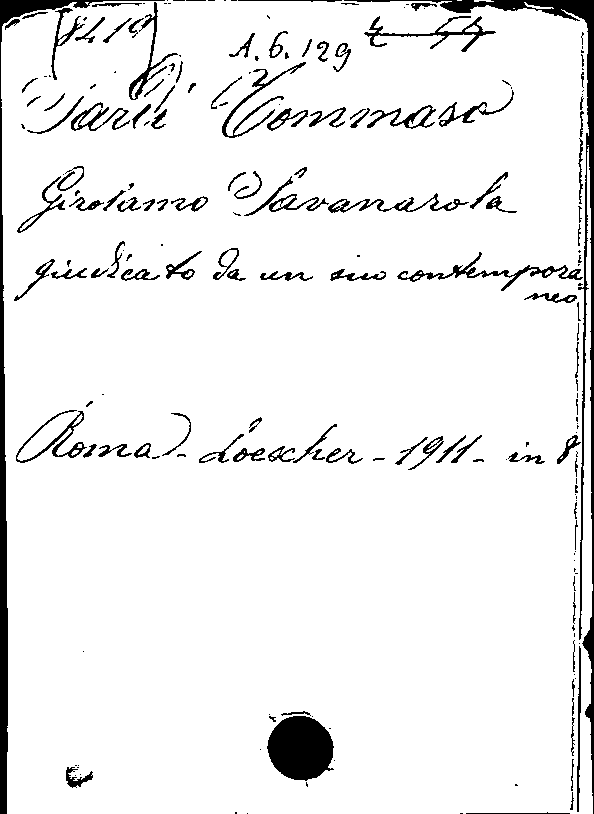 8419 A.6.129
Sardi Tommaso
Girolamo Savanarola
giudicato da un suo contempora=
neo
Roma - Loescher - 1911 - in 8